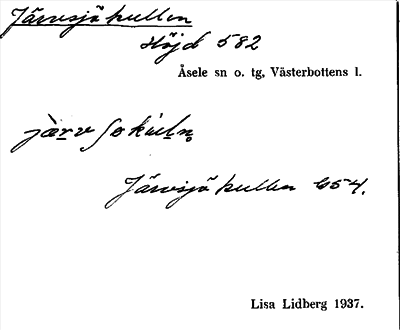 Järvsjökullen
Höjd 582
Åsele sn o. tg, Västerbottens l.
Järvsjökullen G54.
Lisa Lidberg 1937.